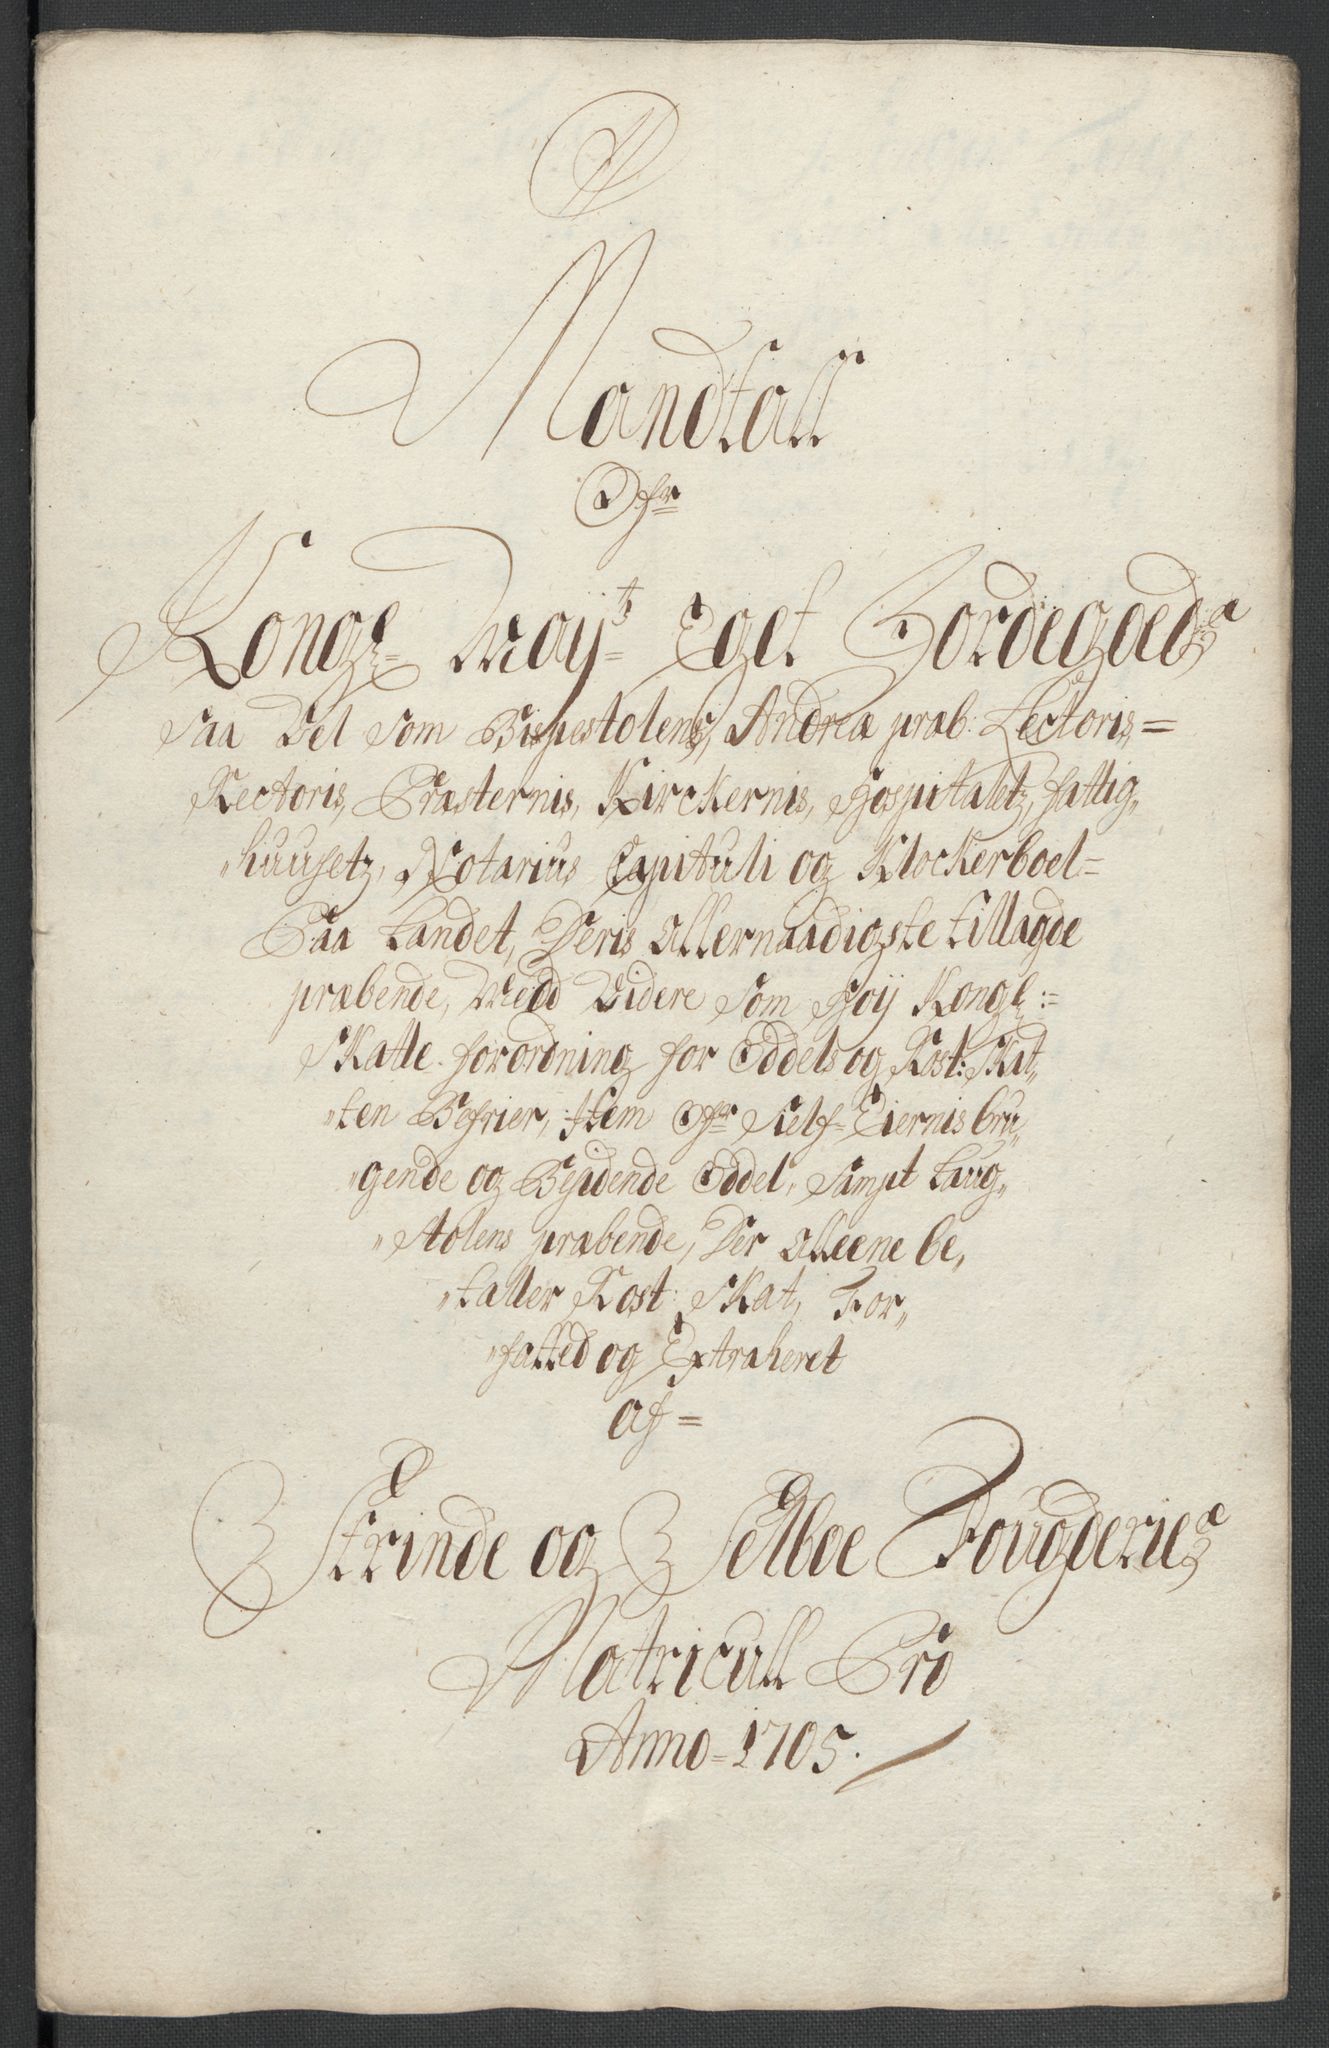 Mandtall
Ofr
Kongl= May:ts Eget Jordegoeds
Saa Vel Som Bispestolens, Andreæ præb: Lectoris=
Rectoris, Præsternis, Kirckernis, Hospitaletz, fattig„
„huusetz, Notarius Capituli og Klockerboel=
Paa Landet, Deris Allernaadigste tillagde
præbende, Medd Videre Som Høy Kongl:=
Skatte forordning for Oddels og Rost: Skat„
„ten Befrier, Item Ofr Self-Eiernis bru„
„gende og Besidende Oddel, Sampt Laug„
„Stolens præbende, Der Alleene be„
„taller Rost: Skat, For„
„fatted og Extraheret
af=
Strinde og Selboe Fougderies
Matricull Pro
Anno=1705.